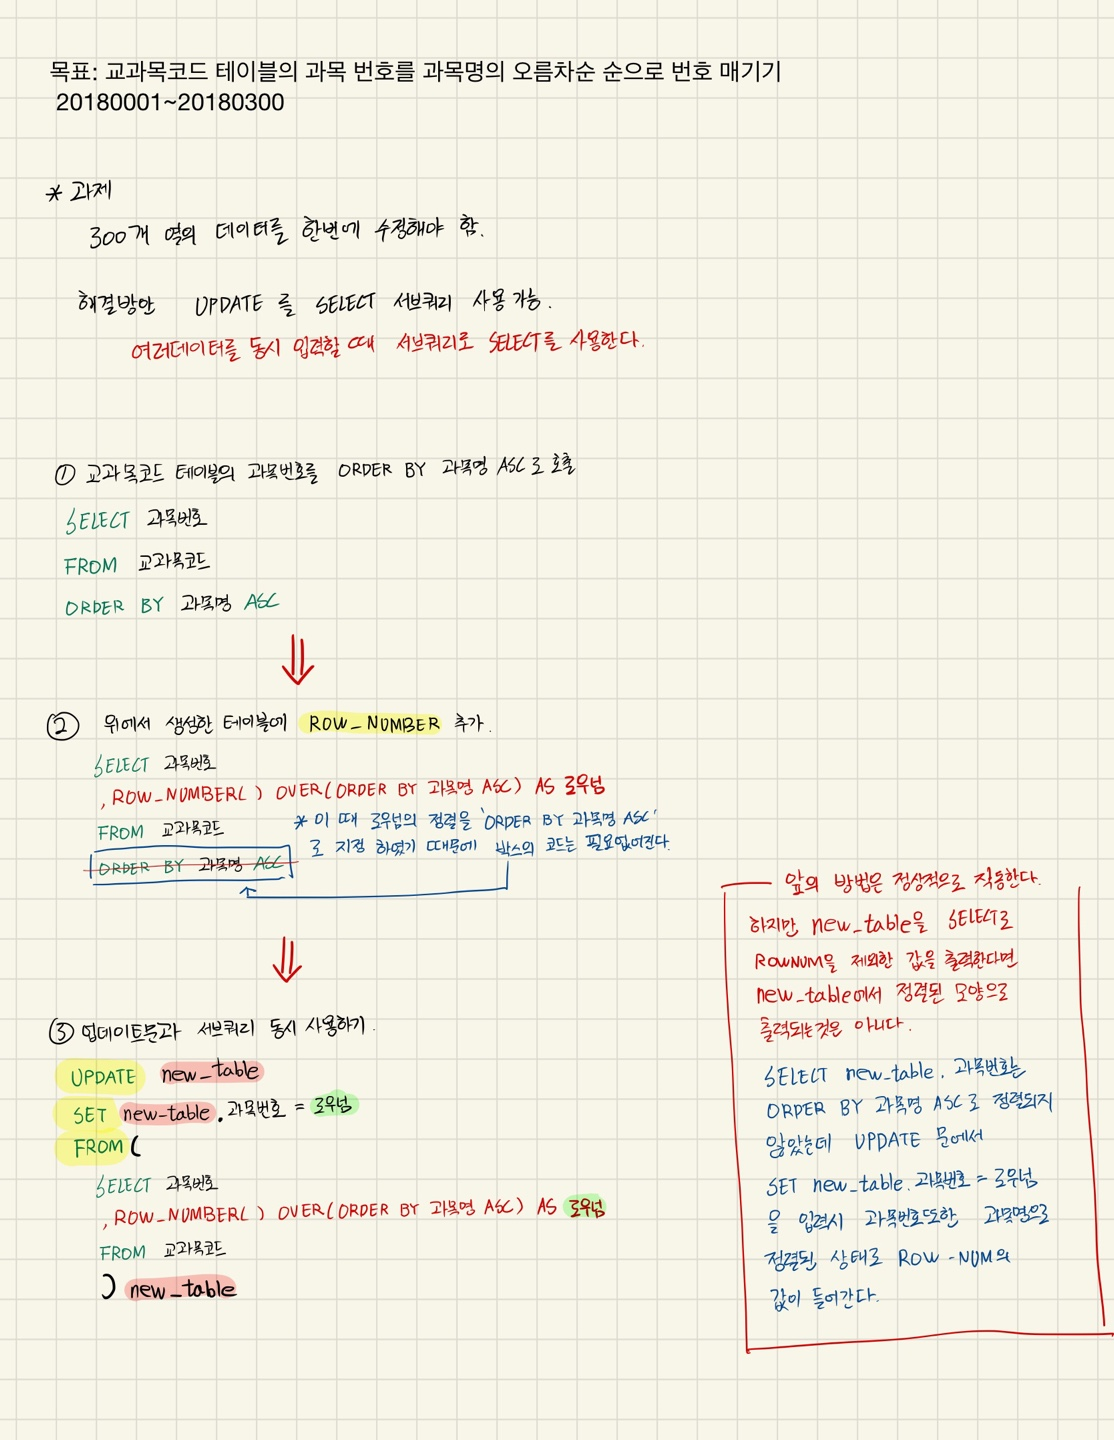 목표: 교과목코드 테이블의 과목 번호를 과목명의 오름차순 순으로 번호 매기기
20180001~20180300
* 과제
300개 열의 데이터를 한번에 수정해야 함.
해결방안 UPDATE 를 SELECT 서브쿼리 사용 가능.
여러데이터를 동시 입력할 때 서브쿼리로 SELECT를 사용한다.
① 교과목코드 테이블의 과목번호를 ORDER BY 과목명 ASC로 호출
SELECT 과목번호
FROM 교과목코드
ORDER BY 과목명 ASC
② 위에서 생성한 테이블에 ROW_NUMBER 추가.
SELECT 과목번호
, ROW_NUMBER( ) OVER(ORDER BY 과목명 ASC) AS 로우넘
FROM 교과목코드
* 이 때 로우넘의 정렬을 'ORDER BY 과목명 ASC'
로 지정 하였기 때문에 박스의 코드는 필요없어진다.
ORDER BY 과목명 ASC
③ 업데이트문과 서브쿼리 동시 사용하기.
UPDATE new_table
SET new-table.과목번호 = 로우넘
FROM (
SELECT 과목번호
, ROW_NUMBER( ) OVER(ORDER BY 과목명 ASC) AS 로우넘
FROM 교과목코드
) new_table
앞의 방법은 정상적으로 작동한다.
하지만, new_table을 SELECT로
ROWNUM을 제외한 값을 출력한다면
new_table에서 정렬된 모양으로
출력되는것은 아니다.
SELECT new_table. 과목번호는
ORDER BY 과목명 ASC로 정렬되지
않았는데 UPDATE 문에서
SET new_table.과목번호 = 로우넘
을 입력시 과목번호또한 과목명으로
정렬된 상태로 ROW-NUM의
값이 들어간다.